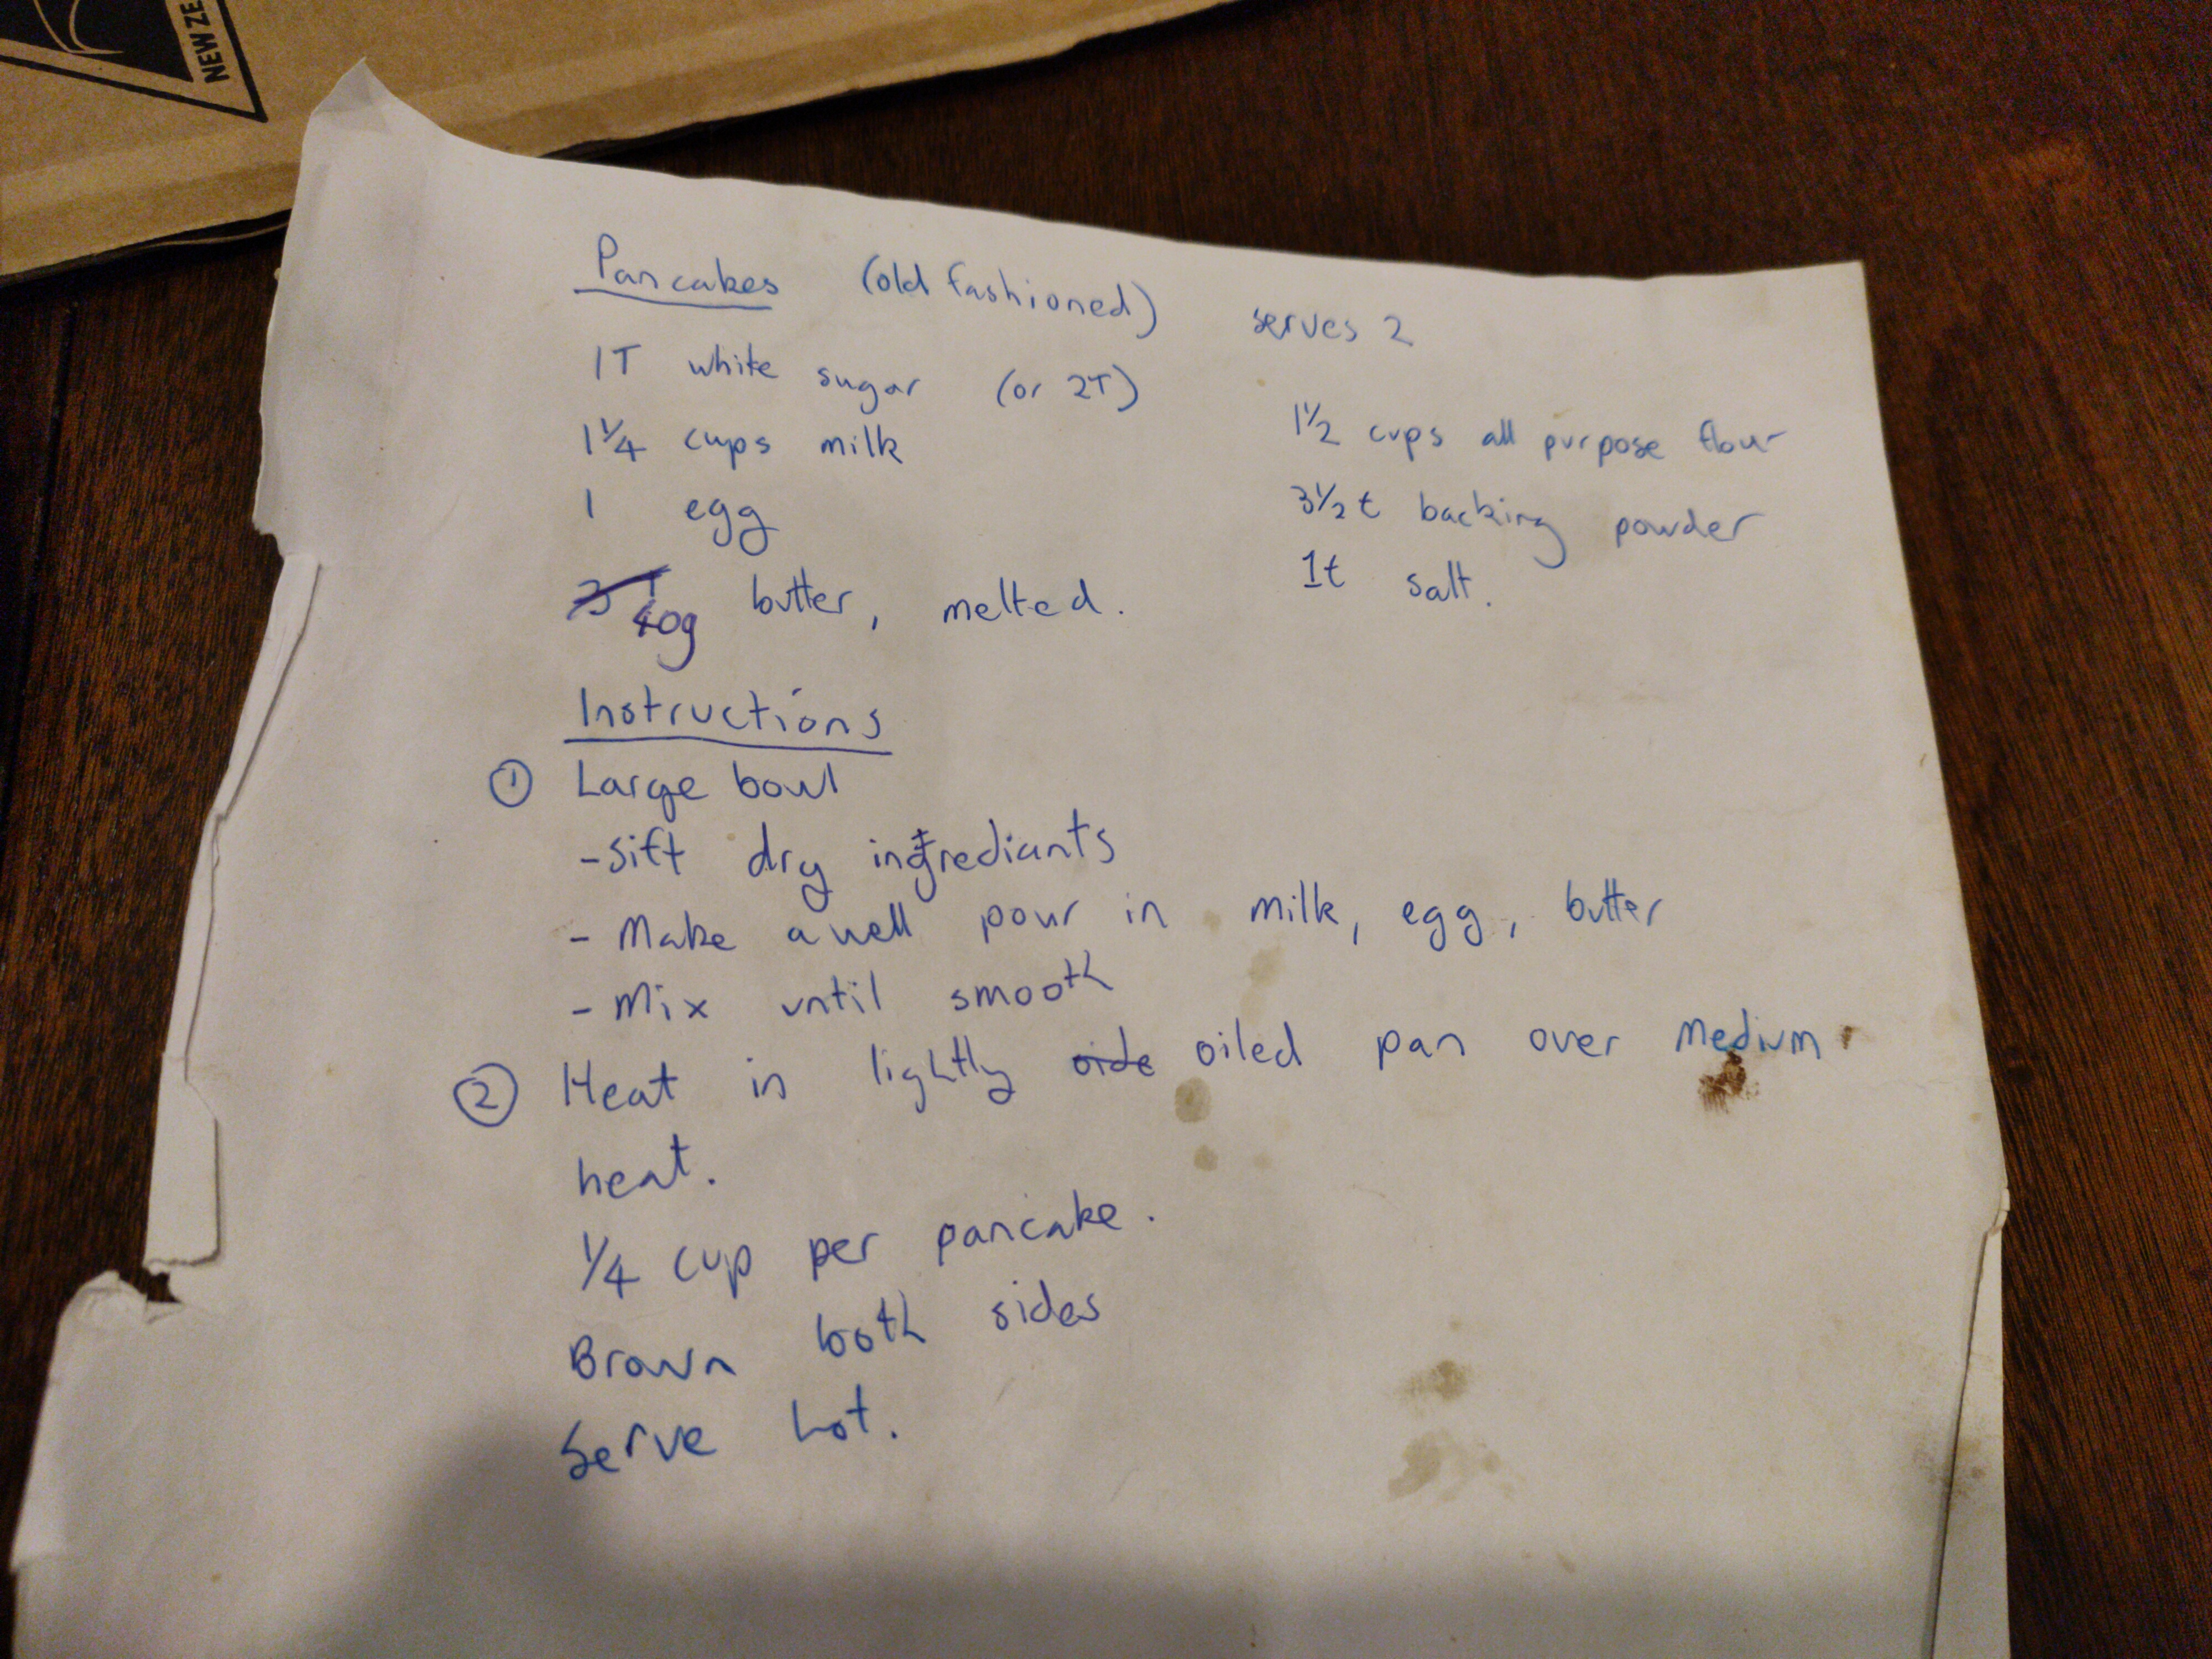 NEW ZE
Pancakes (old fashioned) serves 2
1T white sugar (or 2T)
1 1/4 cups milk
1 egg
3T 40g butter, melted.
1 1/2 cups all purpose flour
3 1/2 t backing powder
1t salt.
Instructions
① Large bowl
- sift dry ingrediants
- Make a well pour in milk, egg, butter
- Mix until smooth
② Heat in lightly oide oiled pan over medium
heat.
1/4 cup per pancake.
Brown both sides
Serve hot.